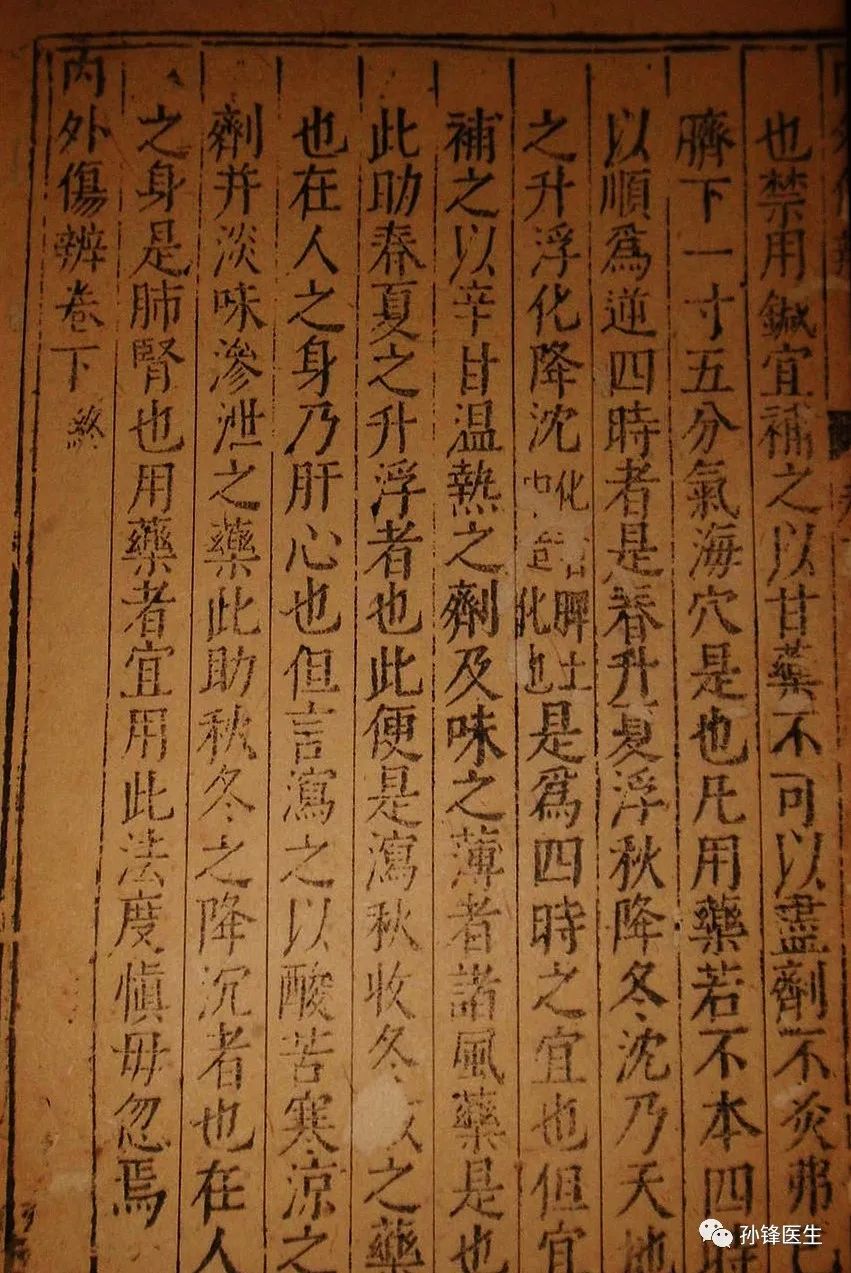 也禁用鍼宜補之以甘藥不可以盡劑不灸弗
臍下一寸五分氣海穴是也凡用藥若不本四時
以順爲逆四時者是春升夏浮秋降冬沈乃天地
之升浮化降沈化者脾土中造化也是爲四時之宜也但宜
補之以辛甘温熱之劑及味之薄者諸風藥是也
此助春夏之升浮者也此便是瀉秋收冬之藥
也在人之身乃肝心也但言瀉之以酸苦寒涼之
劑并淡味滲泄之藥此助秋冬之降沉者也在人
之身是肺腎也用藥者宜用此法度愼毋忽焉
内外傷辨卷下終
孙锋医生